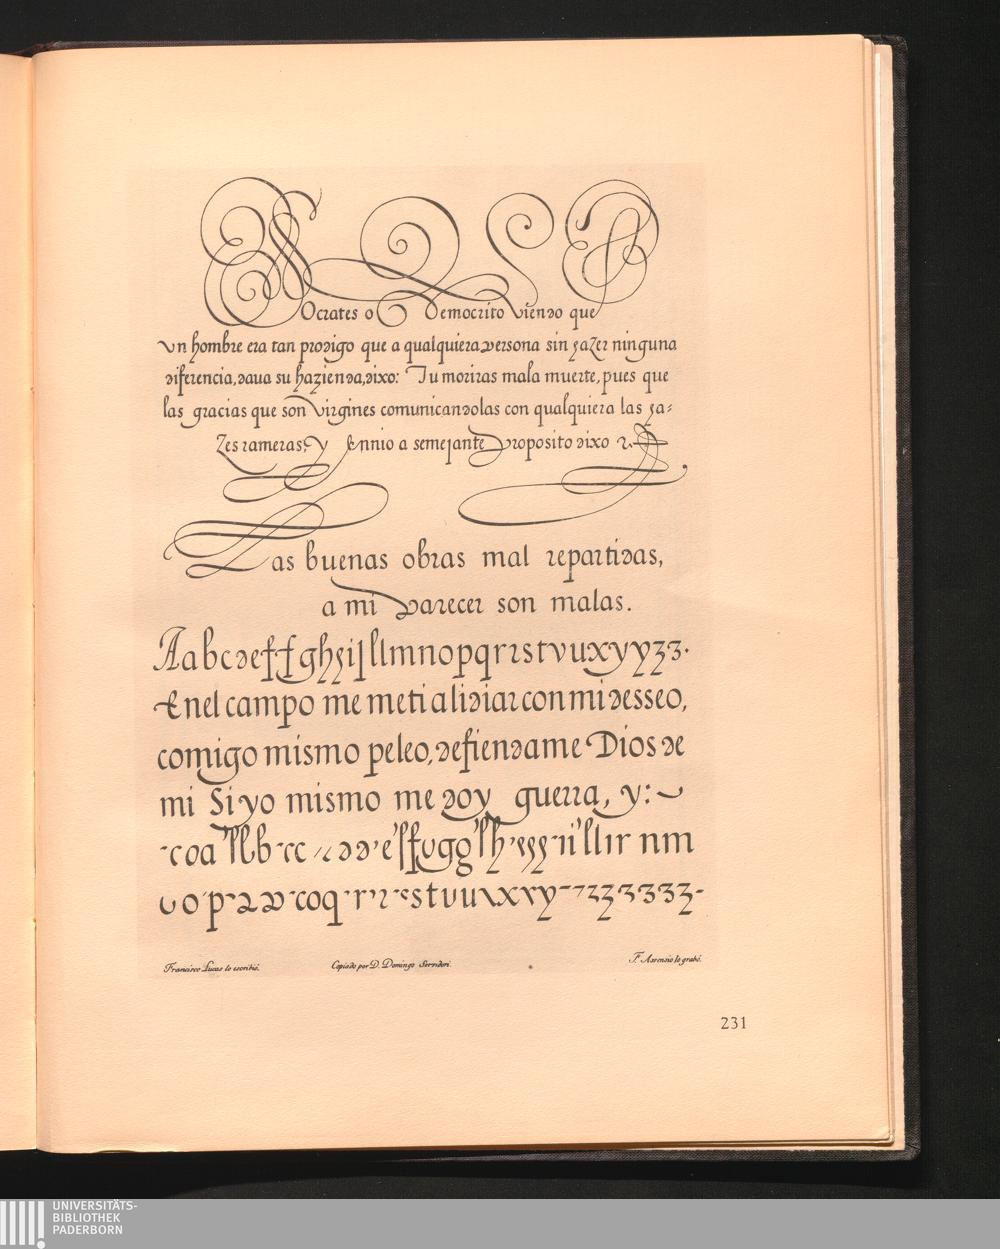 Socrates o Democrito viendo que
vn hombre era tan prodigo que a qualquiera persona sin hazer ninguna
diferencia, daua su hazienda, dixo: Tu moriras mala muerte, pues que
las gracias que son virgines comunicandolas con qualquiera las ha=
zes rameras, y Ennio a semejante proposito dixo
Las buenas obras mal repartidas,
a mi parecer son malas.
Aabcdeffghhijllmnopqrrstvuxyyzz.
Enel campo me meti a lidiar con mi desseo,
comigo mismo peleo, defiendame Dios de
mi Si yo mismo me doy guerra, y:
Francisco Lucas lo escribió.
Copiado por D. Domingo Servidori.
F. Assensio lo grabó.
231
UNIVERSITÄTS-
BIBLIOTHEK
PADERBORN